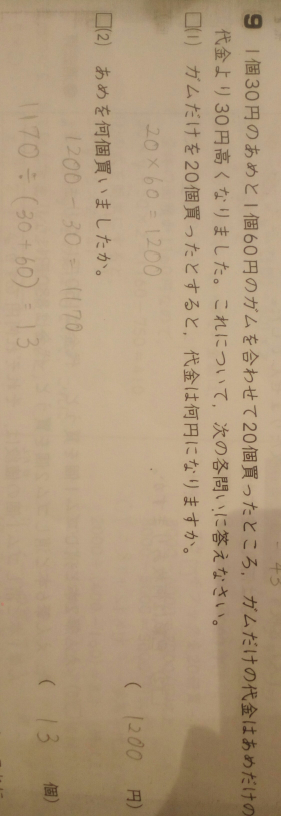 9 1個30円のあめと1個60円のガムを合わせて20個買ったところ,ガムだけの代金はあめだけの
代金より30円高くなりました。これについて,次の各問いに答えなさい。
□(1) ガムだけを20個買ったとすると,代金は何円になりますか。
20×60=1200
( 1200 円)
□(2) あめを何個買いましたか。
1200-30=1170
1170÷(30+60)=13
( 13 個)